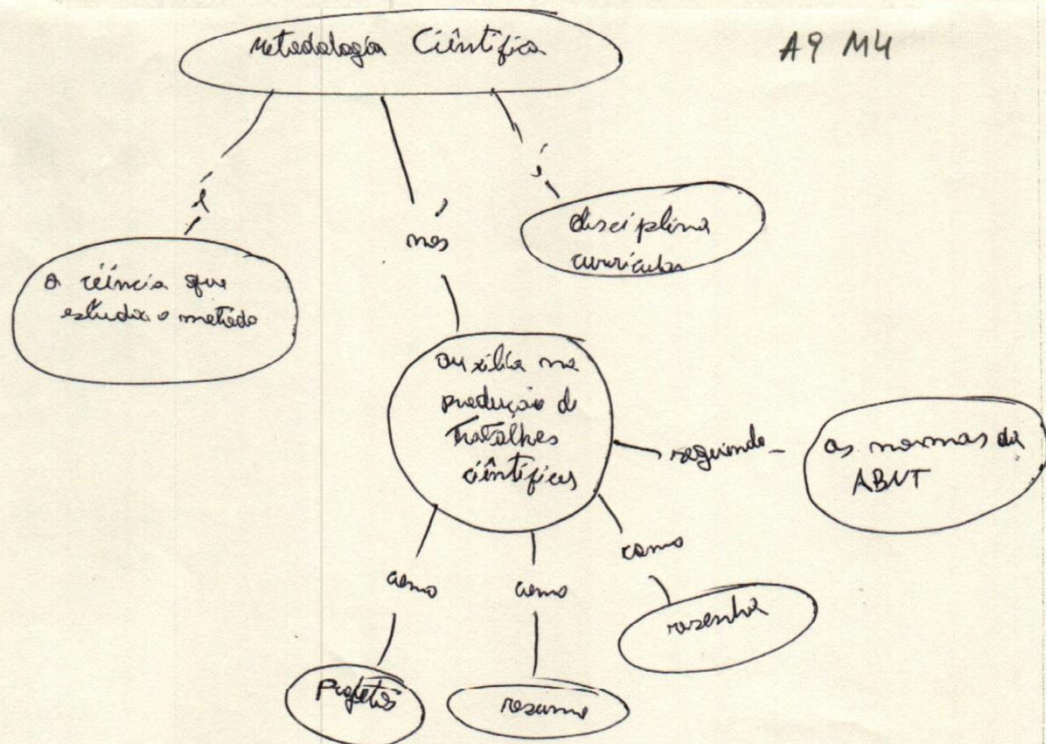 Metodologia Ciêntífica
A9 M4
é
nos
é
a ciência que
estuda o metódo
disciplina
curricular
auxilia na
produção de
trabalhos
ciêntíficos
seguindo
as normas da
ABNT
como
como
como
projetos
resumo
resenha